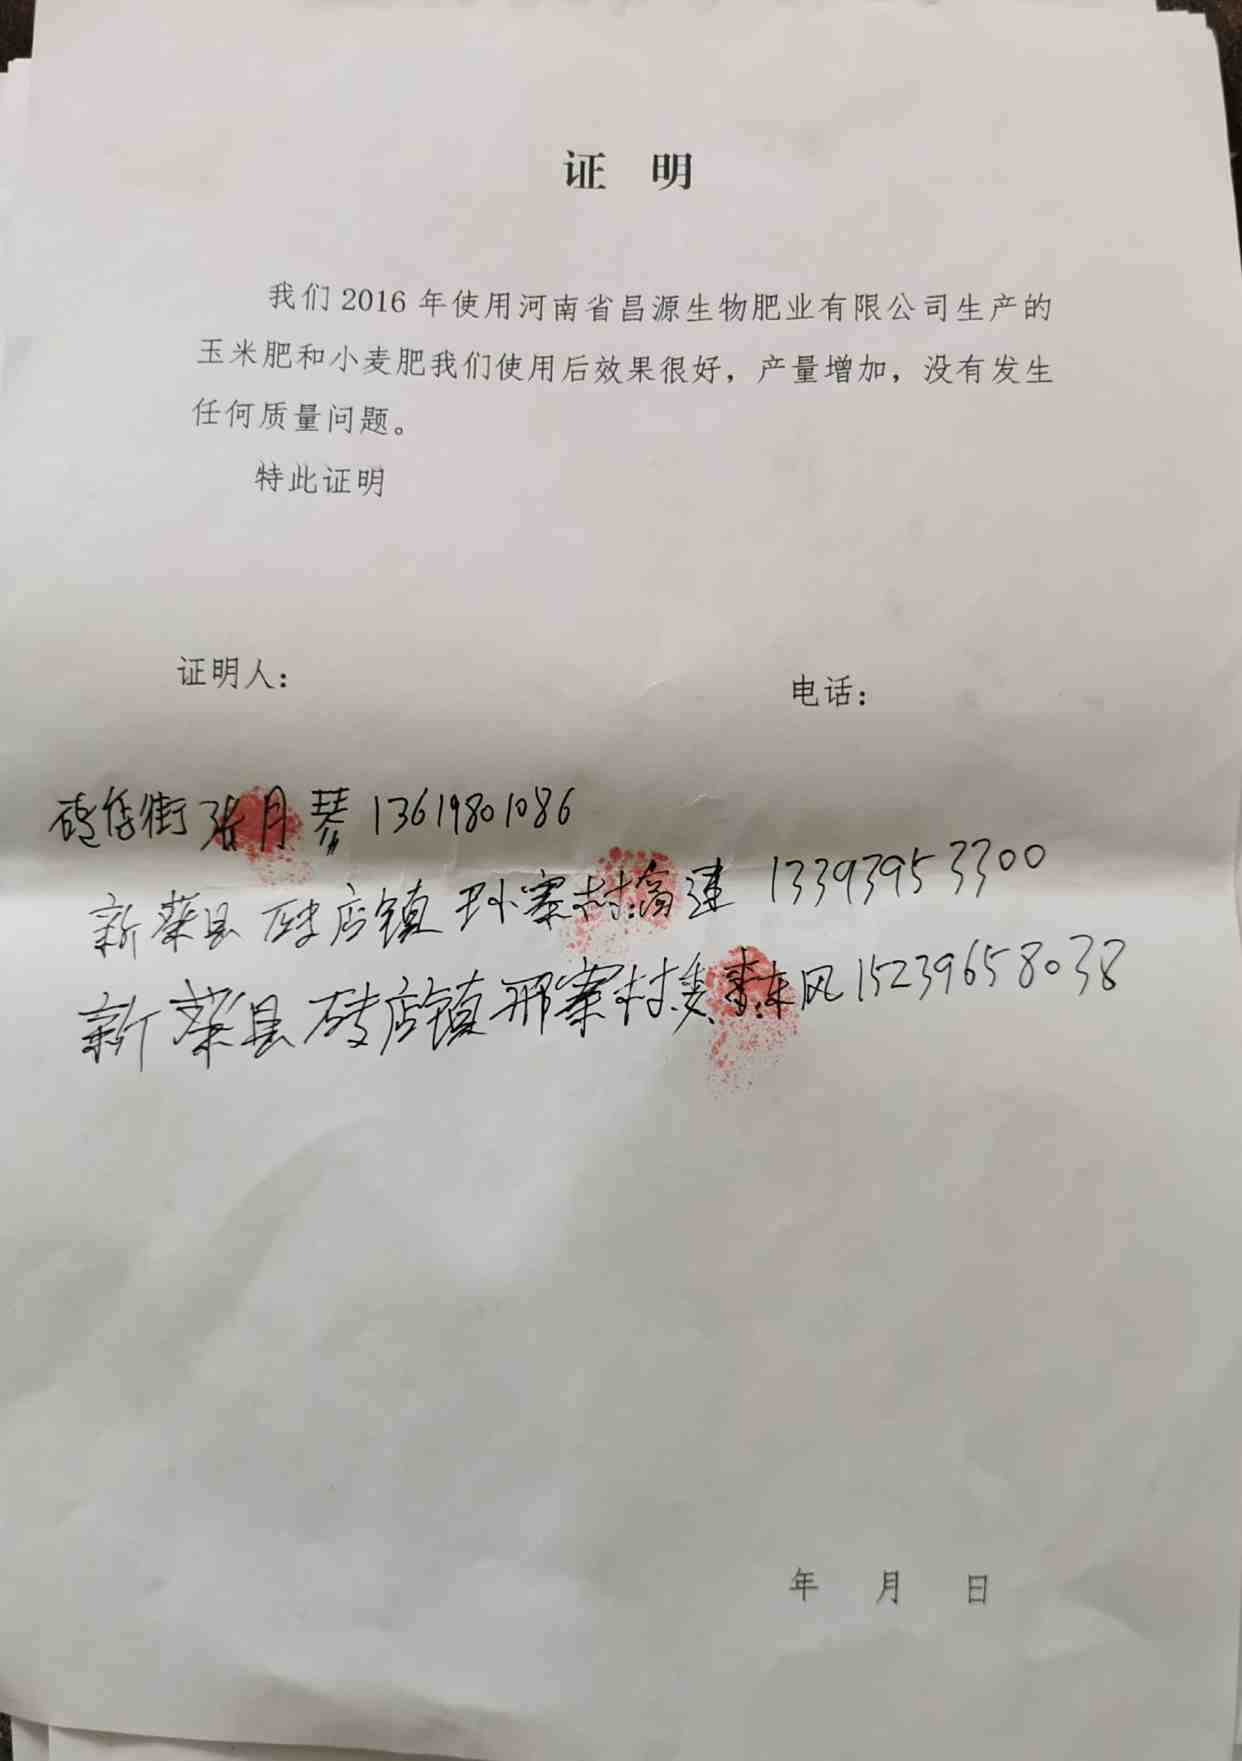 证 明
我们 2016 年使用河南省昌源生物肥业有限公司生产的
玉米肥和小麦肥我们使用后效果很好，产量增加，没有发生
任何质量问题。
特此证明
证明人： 电话：
街 张月琴 13619801086
新蔡县 砖店镇 孙寨村 高建 13393953300
新蔡县 砖店镇 邢寨村 东风 15239658038
年 月 日